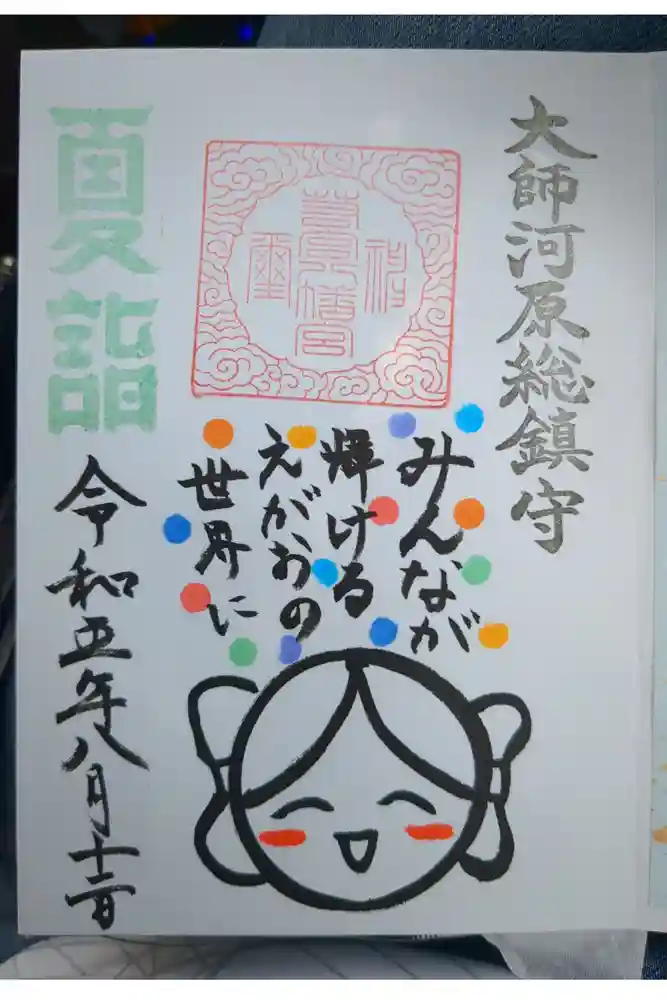 大師河原総鎮守
みんなが
輝ける
えがおの
世界に
夏詣
令和五年八月十二日